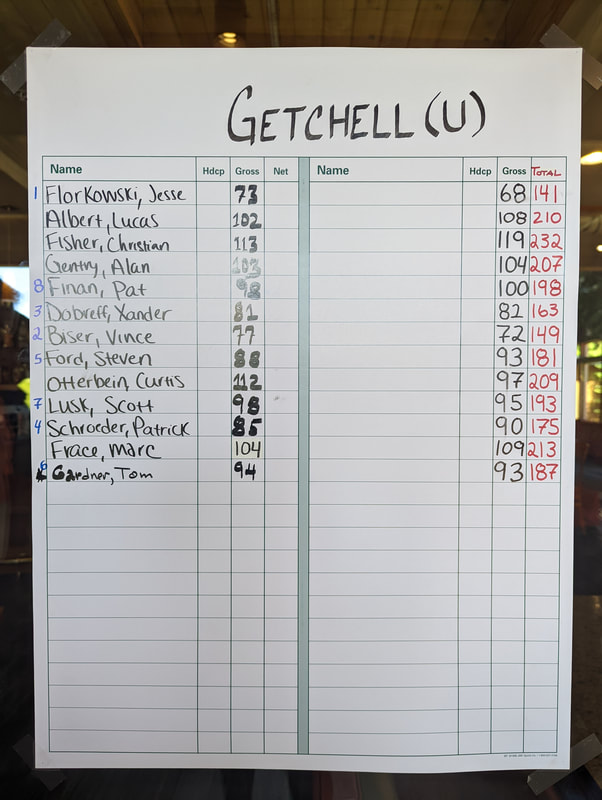 GETCHELL (U)
Name Hdcp Gross Net Name Hdcp Gross TOTAL
1 Florkowski, Jesse 73 68 141
Albert, Lucas 102 108 210
Fisher, Christian 113 119 232
Gentry, Alan 103 104 207
8 Finan, Pat 98 100 198
3 Dobreff, Xander 81 82 163
2 Biser, Vince 77 72 149
5 Ford, Steven 88 93 181
Otterbein, Curtis 112 97 209
7 Lusk, Scott 98 95 193
4 Schroeder, Patrick 85 90 175
Frace, Marc 104 109 213
6 Gardner, Tom 94 93 187